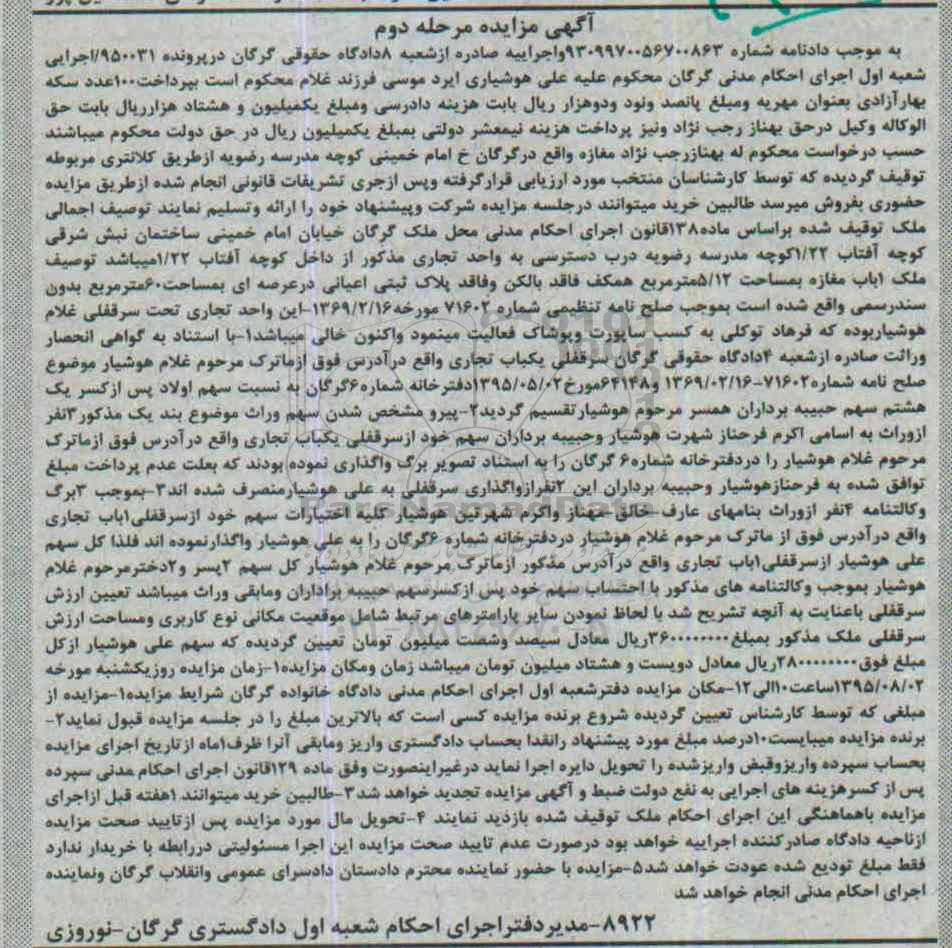 آگهی مزایده مرحله دوم
به موجب دادنامه شماره ۹۳۰۹۹۷۰۰۵۶۷۰۰۸۶۳واجراییه صادره ازشعبه ۸دادگاه حقوقی گرگان درپرونده ۹۵۰۰۳۱/اجرایی
شعبه اول اجرای احکام مدنی گرگان محکوم علیه علی هوشیاری ایرد موسی فرزند غلام محکوم است بپرداخت۱۰۰عدد سکه
بهارآزادی بعنوان مهریه ومبلغ پانصد ونود ودوهزار ریال بابت هزینه دادرسی ومبلغ یکمیلیون و هشتاد هزارریال بابت حق
الوکاله وکیل درحق بهناز رجب نژاد ونیز پرداخت هزینه نیمعشر دولتی بمبلغ یکمیلیون ریال در حق دولت محکوم میباشند
حسب درخواست محکوم له بهنازرجب نژاد مغازه واقع درگرگان خ امام خمینی کوچه مدرسه رضویه ازطریق کلانتری مربوطه
توقیف گردیده که توسط کارشناسان منتخب مورد ارزیابی قرارگرفته وپس ازجری تشریفات قانونی انجام شده ازطریق مزایده
حضوری بفروش میرسد طالبین خرید میتوانند درجلسه مزایده شرکت وپیشنهاد خود را ارائه وتسلیم نمایند توصیف اجمالی
ملک توقیف شده براساس ماده۱۳۸قانون اجرای احکام مدنی محل ملک گرگان خیابان امام خمینی ساختمان نبش شرقی
کوچه آفتاب ۱/۲۲کوچه مدرسه رضویه درب دسترسی به واحد تجاری مذکور از داخل کوچه آفتاب ۱/۲۲میباشد توصیف
ملک ۱باب مغازه بمساحت ۵/۱۲مترمربع همکف فاقد بالکن وفاقد پلاک ثبتی اعیانی درعرصه ای بمساحت۶۰مترمربع بدون
سندرسمی واقع شده است بموجب صلح نامه تنظیمی شماره ۷۱۶۰۲ مورخه۱۳۶۹/۲/۱۶-این واحد تجاری تحت سرقفلی غلام
هوشیاربوده که فرهاد توکلی به کسب ساپورت وپوشاک فعالیت مینمود واکنون خالی میباشد۱-با استناد به گواهی انحصار
وراثت صادره ازشعبه ۴دادگاه حقوقی گرگان سرقفلی یکباب تجاری واقع درآدرس فوق ازماترک مرحوم غلام هوشیار موضوع
صلح نامه شماره۷۱۶۰۲-۱۳۶۹/۰۲/۱۶ و۶۴۱۴۸مورخ۱۳۹۵/۰۵/۰۲دفترخانه شماره۶گرگان به نسبت سهم اولاد پس ازکسر یک
هشتم سهم حبیبه برداران همسر مرحوم هوشیارتقسیم گردید۲-پیرو مشخص شدن سهم وراث موضوع بند یک مذکور۳نفر
ازوراث به اسامی اکرم فرحناز شهرت هوشیار وحبیبه برداران سهم خود ازسرقفلی یکباب تجاری واقع درآدرس فوق ازماترک
مرحوم غلام هوشیار را دردفترخانه شماره۶ گرگان را به استناد تصویر برگ واگذاری نموده بودند که بعلت عدم پرداخت مبلغ
توافق شده به فرحنازهوشیار وحبیبه برداران این ۲نفرازواگذاری سرقفلی به علی هوشیارمنصرف شده اند۳-بموجب ۳برگ
وکالتنامه ۴نفر ازوراث بنامهای عارف خالق مهناز واکرم شهرتین هوشیار کلیه اختیارات سهم خود ازسرقفلی۱باب تجاری
واقع درآدرس فوق از ماترک مرحوم غلام هوشیار دردفترخانه شماره ۶گرگان را به علی هوشیار واگذارنموده اند فلذا کل سهم
علی هوشیار ازسرقفلی۱باب تجاری واقع درآدرس مذکور ازماترک مرحوم غلام هوشیار کل سهم ۲پسر و۲دخترمرحوم غلام
هوشیار بموجب وکالتنامه های مذکور با احتساب سهم خود پس ازکسرسهم حبیبه برادران ومابقی وراث میباشد تعیین ارزش
سرقفلی باعنایت به آنچه تشریح شد با لحاظ نمودن سایر پارامترهای مرتبط شامل موقعیت مکانی نوع کاربری ومساحت ارزش
سرقفلی ملک مذکور بمبلغ۳۶۰۰۰۰۰۰۰۰ریال معادل سیصد وشصت میلیون تومان تعیین گردیده که سهم علی هوشیار ازکل
مبلغ فوق۲۸۰۰۰۰۰۰۰۰ریال معادل دویست و هشتاد میلیون تومان میباشد زمان ومکان مزایده۱-زمان مزایده روزیکشنبه مورخه
۱۳۹۵/۰۸/۰۲ساعت۱۰الی۱۲-مکان مزایده دفترشعبه اول اجرای احکام مدنی دادگاه خانواده گرگان شرایط مزایده۱-مزایده از
مبلغی که توسط کارشناس تعیین گردیده شروع برنده مزایده کسی است که بالاترین مبلغ را در جلسه مزایده قبول نماید۲-
برنده مزایده میبایست۱۰درصد مبلغ مورد پیشنهاد رانقدا بحساب دادگستری واریز ومابقی آنرا ظرف۱ماه ازتاریخ اجرای مزایده
بحساب سپرده واریزوقبض واریزشده را تحویل دایره اجرا نماید درغیراینصورت وفق ماده ۱۲۹قانون اجرای احکام مدنی سپرده
پس از کسرهزینه های اجرایی به نفع دولت ضبط و آگهی مزایده تجدید خواهد شد۳-طالبین خرید میتوانند ۱هفته قبل ازاجرای
مزایده باهماهنگی این اجرای احکام ملک توقیف شده بازدید نمایند ۴-تحویل مال مورد مزایده پس ازتایید صحت مزایده
ازناحیه دادگاه صادرکننده اجراییه خواهد بود درصورت عدم تایید صحت مزایده این اجرا مسئولیتی دررابطه با خریدار ندارد
فقط مبلغ تودیع شده عودت خواهد شد۵-مزایده با حضور نماینده محترم دادستان دادسرای عمومی وانقلاب گرگان ونماینده
اجرای احکام مدنی انجام خواهد شد
۸۹۲۲-مدیردفتراجرای احکام شعبه اول دادگستری گرگان-نوروزی